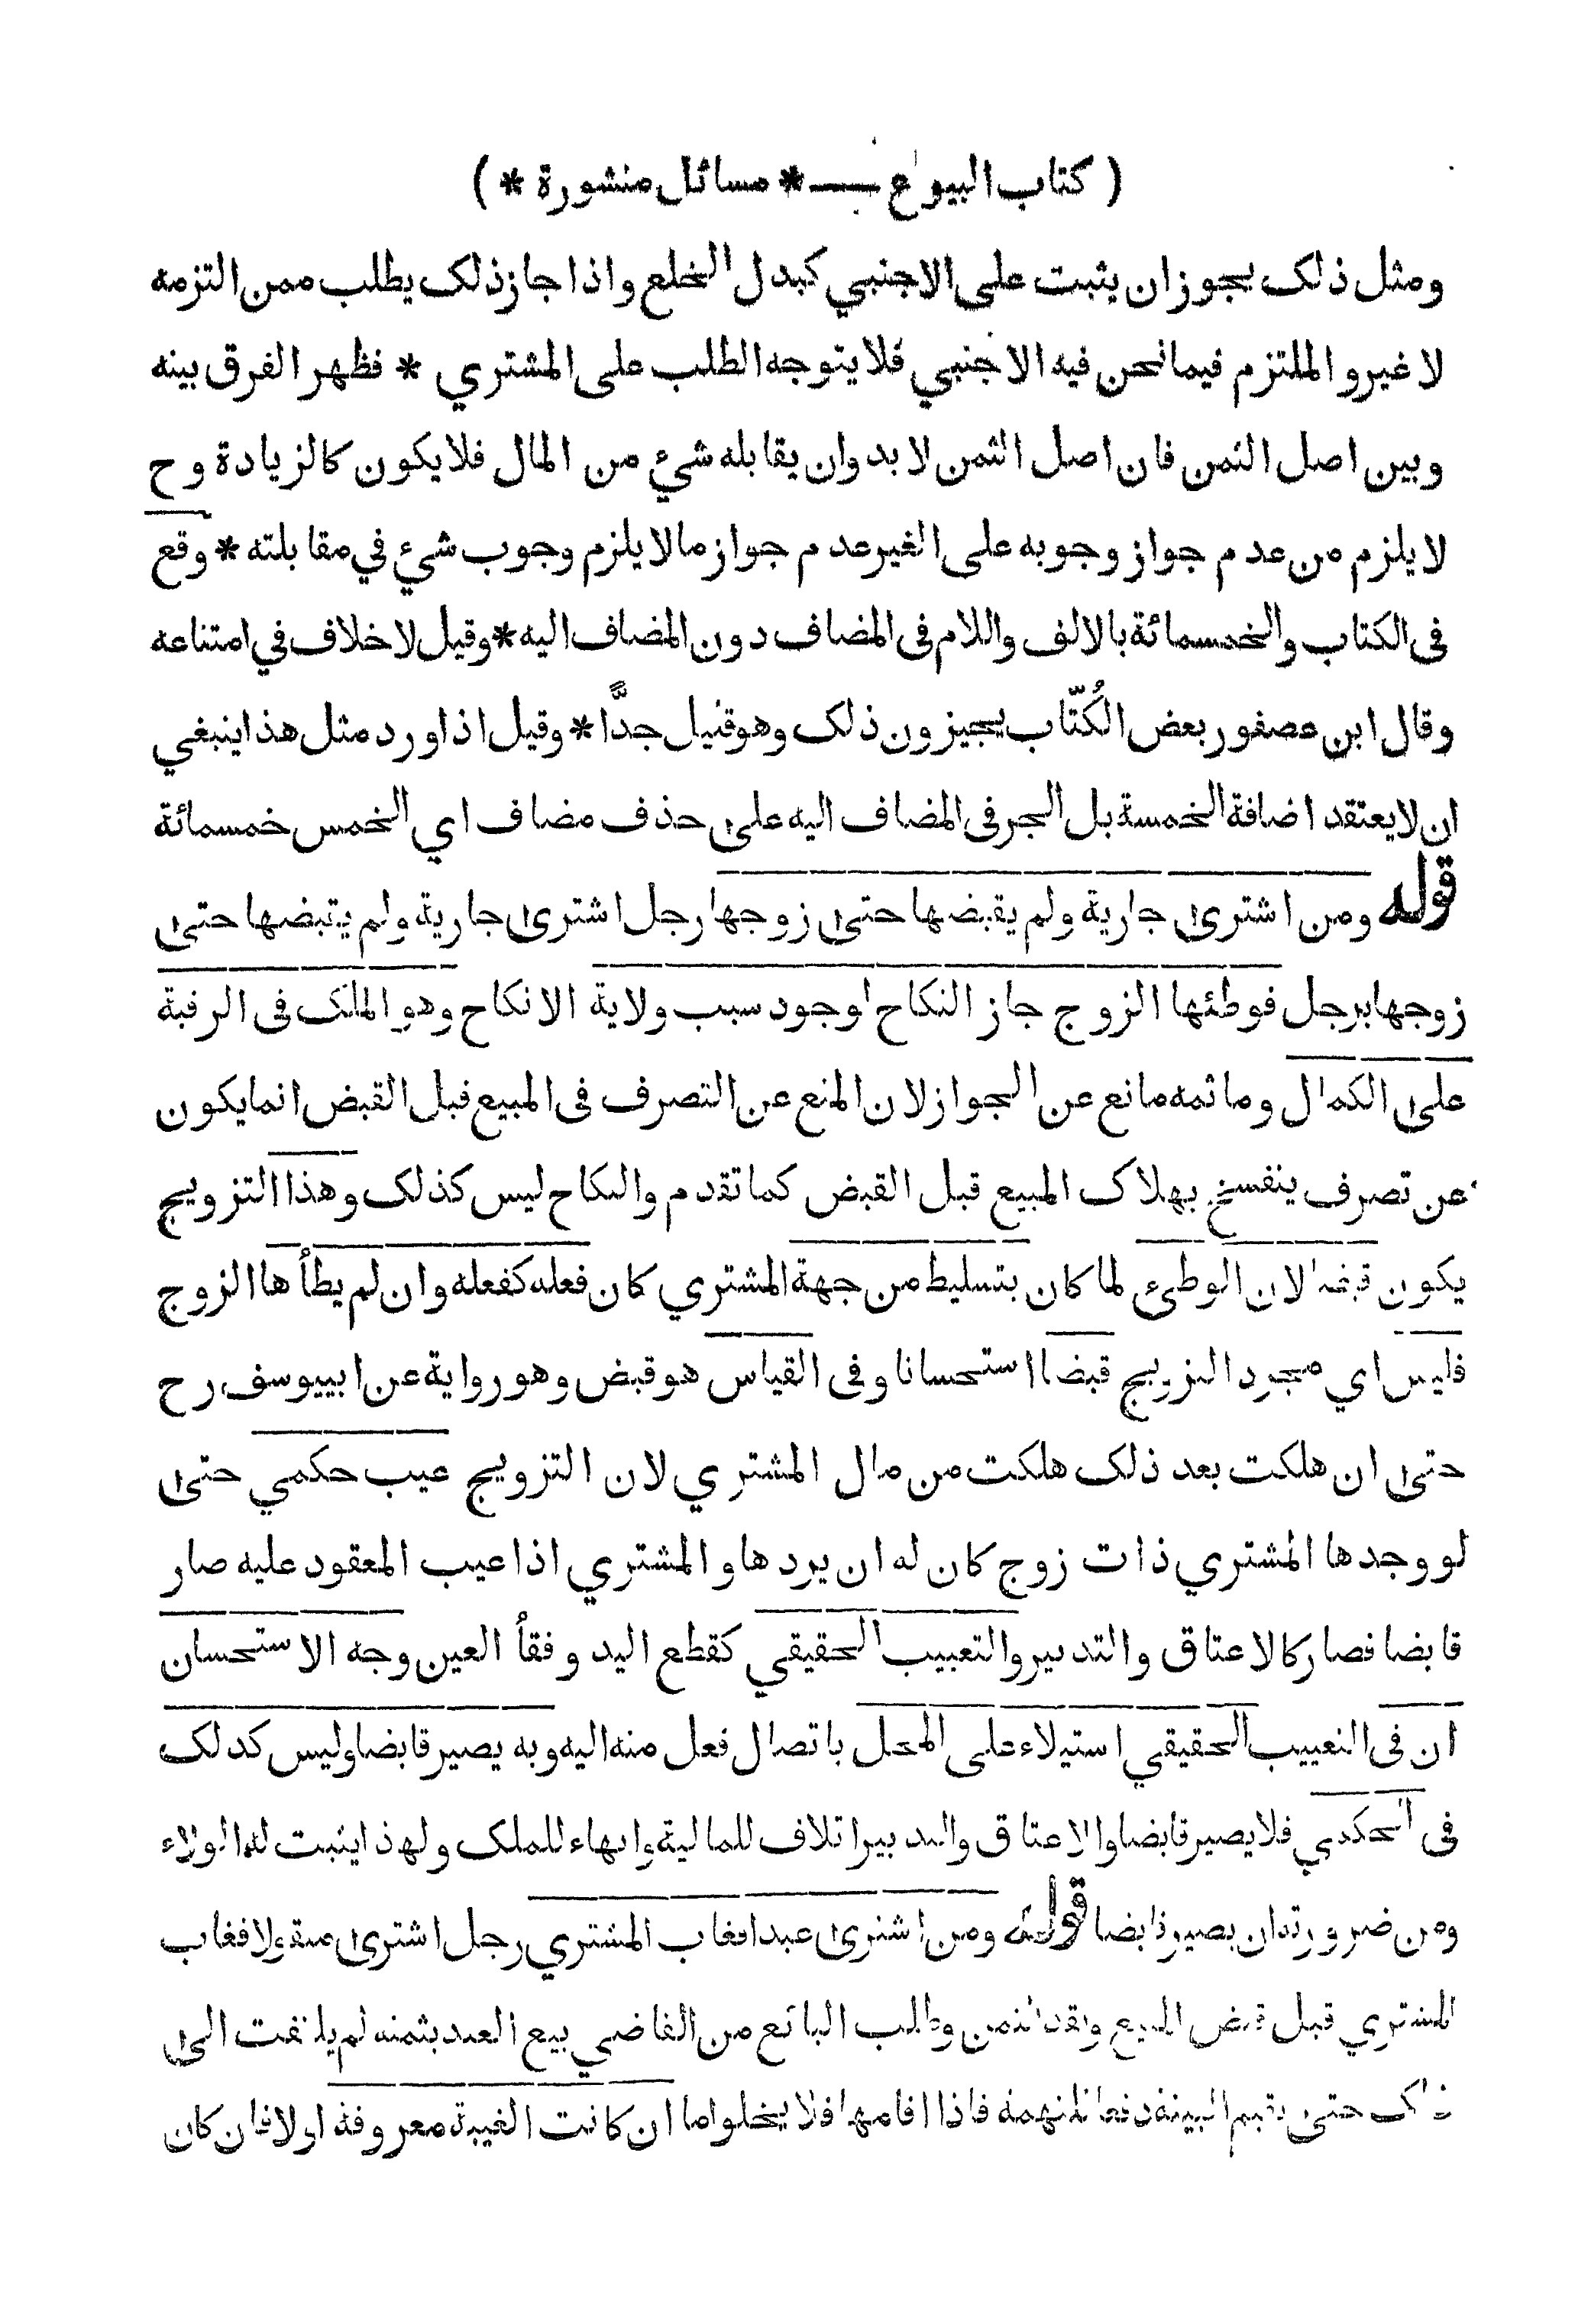 ( كتاب البيوع ـــ * مسائل منثورة * )
ومثل ذلك يجوز ان يثبت على الاجنبي كبدل الخلع واذا جاز ذلك يطلب ممن التزمه
لا غير و الملتزم فيما نحن فيه الاجنبي فلا يتوجه الطلب على المشتري * فظهر الفرق بينه
وبين اصل الثمن فان اصل الثمن لا بد وان يقابله شيء من المال فلا يكون كالزيادة و ح
لا يلزم من عدم جواز وجوبه على الغير عدم جواز ما لا يلزم وجوب شيء في مقابلته * وقع
في الكتاب والخمسمائة بالالف واللام في المضاف دون المضاف اليه * وقيل لا خلاف في امتناعه
وقال ابن عصفور بعض الكُتّاب يجيزون ذلك وهو قليل جدًّا * وقيل اذا ورد مثل هذا ينبغي
ان لا يعتقد اضافة الخمسة بل الجر في المضاف اليه على حذف مضاف اي الخمس خمسمائة
قوله ومن اشترى جارية ولم يقبضها حتى زوجها رجل اشترى جارية ولم يقبضها حتى
زوجها برجل فوطئها الزوج جاز النكاح لوجود سبب ولاية الانكاح وهو الملك في الرقبة
على الكمال وما ثمه مانع عن الجواز لان المنع عن التصرف في المبيع قبل القبض انما يكون
عن تصرف ينفسخ بهلاك المبيع قبل القبض كما تقدم والنكاح ليس كذلك وهذا التزويج
يكون قبضا لان الوطيء لما كان بتسليط من جهة المشتري كان فعله كفعله وان لم يطأها الزوج
فليس اي مجرد التزويج قبضا استحسانا وفي القياس هو قبض وهو رواية عن ابييوسف رح
حتى ان هلكت بعد ذلك هلكت من مال المشتري لان التزويج عيب حكمي حتى
لو وجدها المشتري ذات زوج كان له ان يردها و المشتري اذا عيب المعقود عليه صار
قابضا فصار كالاعتاق والتدبير والتعييب الحقيقي كقطع اليد وفقأ العين وجه الاستحسان
ان في التعييب الحقيقي استيلاء على المحل باتصال فعل منه اليه وبه يصير قابضا وليس كذلك
في الحكمي فلا يصير قابضا والاعتاق والتدبير اتلاف للمالية وانهاء للملك ولهذا يثبت له الولاء
ومن ضرورته ان يصير قابضا قوله ومن اشترى عبدا فغاب المشتري رجل اشترى منقولا فغاب
المشتري قبل قبض المبيع ونقد الثمن وطلب البائع من القاضي بيع العبد بثمنه لم يلتفت الى
ذلك حتى يقيم البينة دفعا للتهمة فاذا اقامها فلا يخلو اما ان كانت الغيبة معروفة او لا فان كان